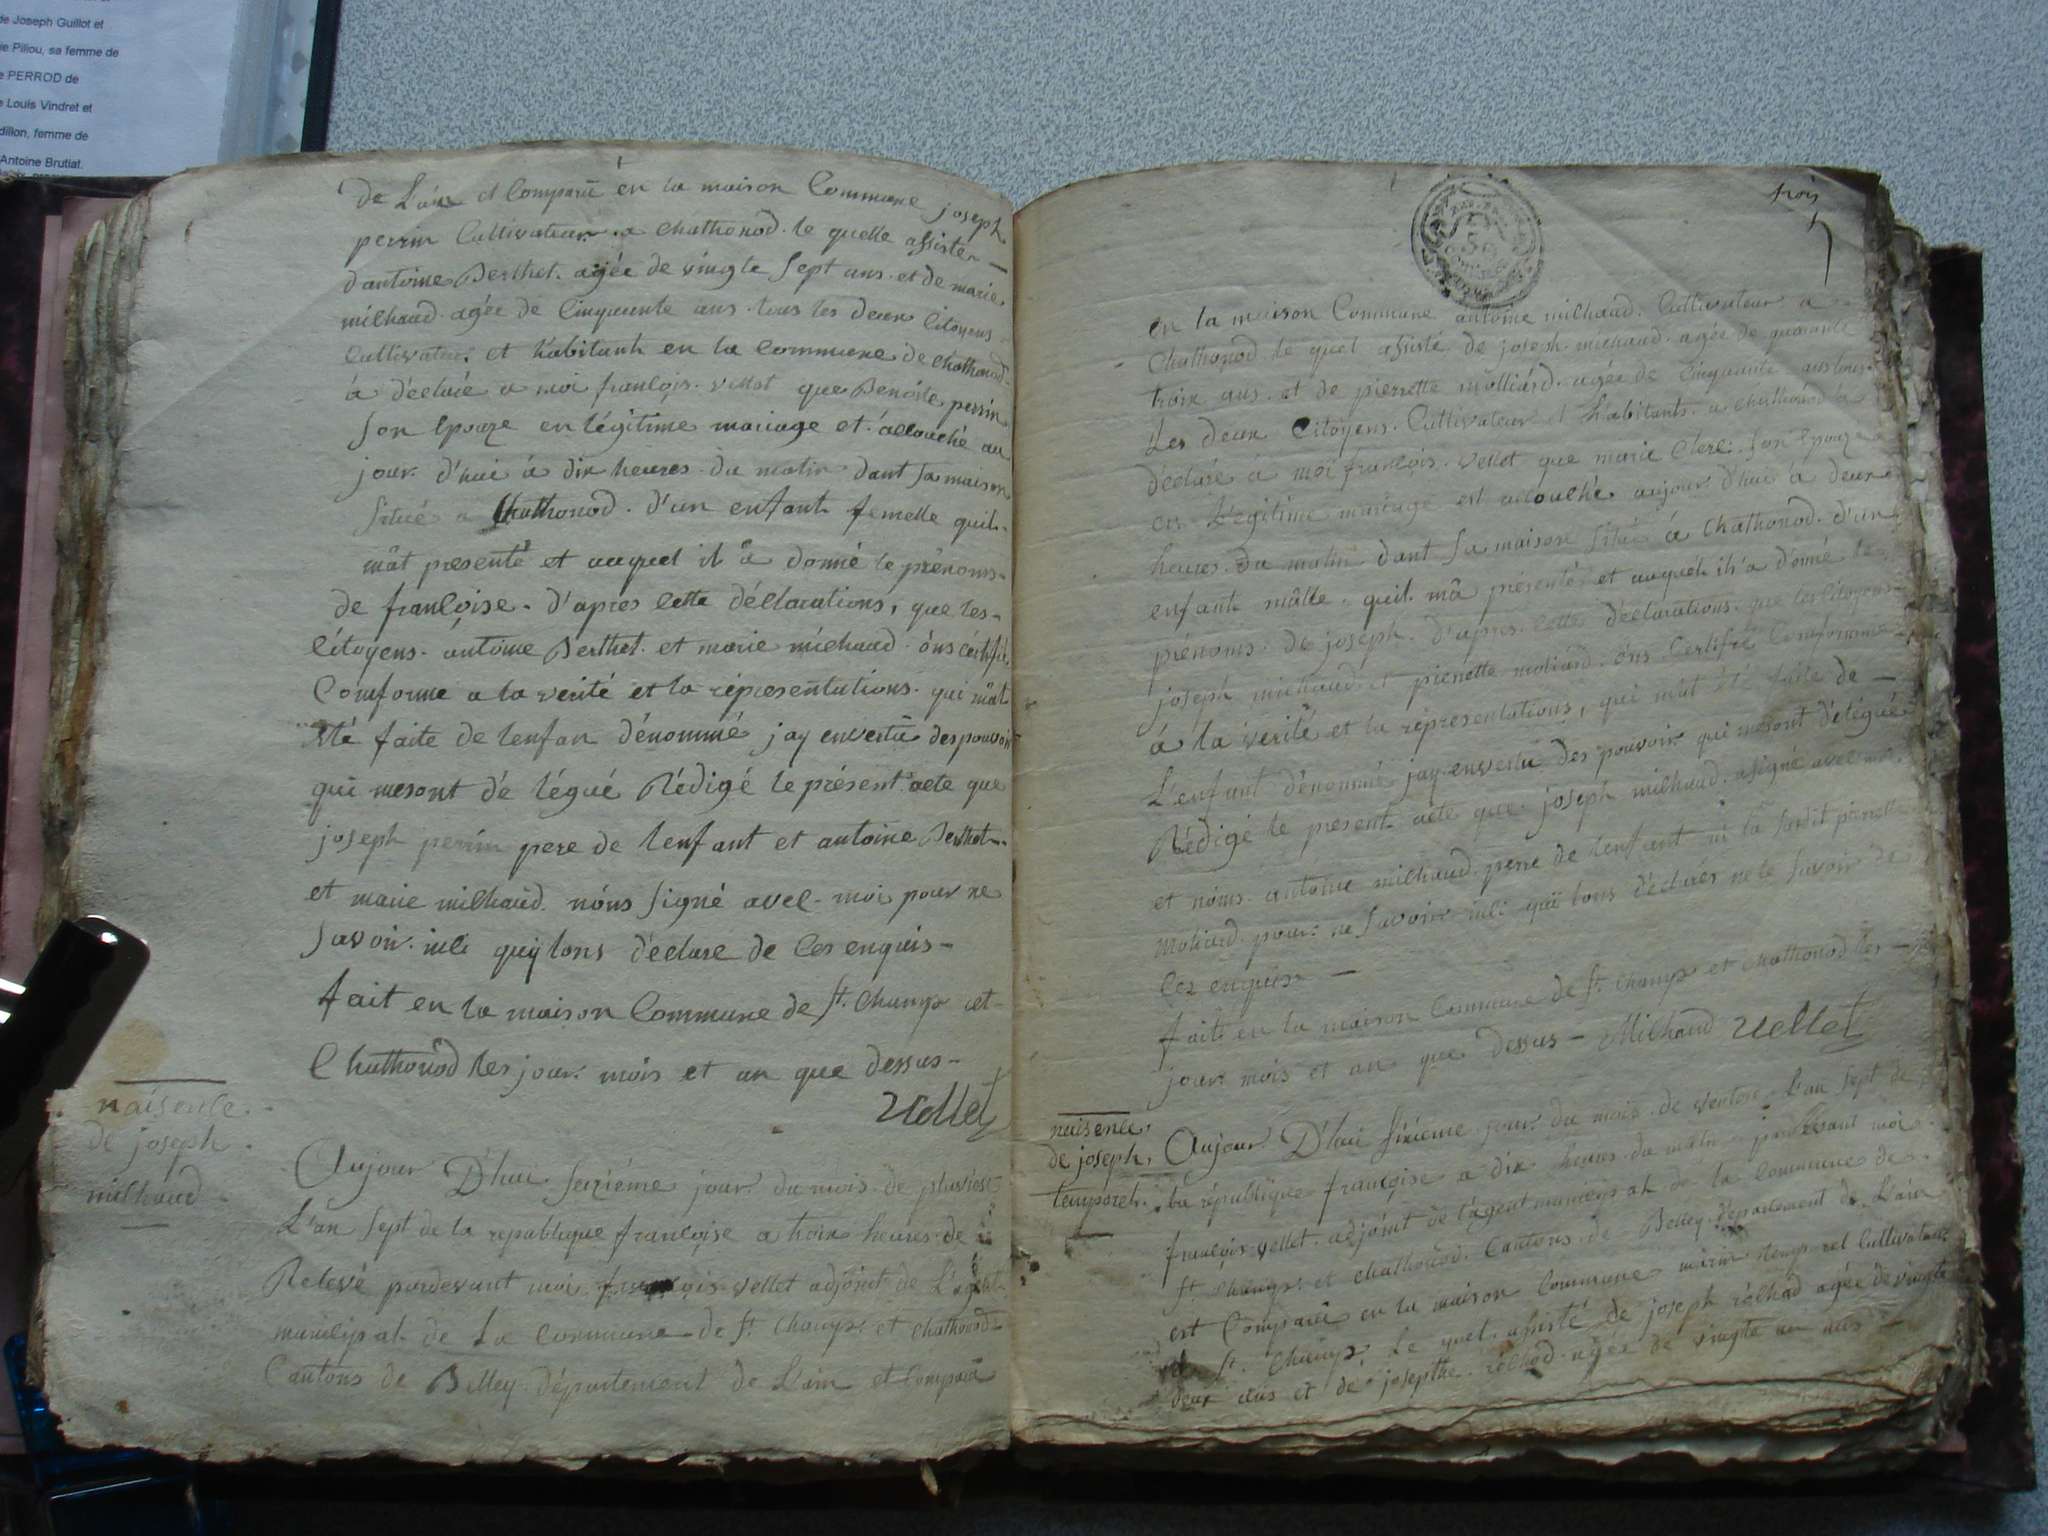 de Joseph Guillot et
ie Piliou, sa femme de
e PERROD de
e Louis Vindret et
dillon, femme de
Antoine Brutiat.
de L'ain et Comparû en la maison Commune joseph
perrin Cultivateur a Chathonod le quelle assister
d'antoine Berthet agée de vingte sept ans et de marie
milhaud agée de Cinquente ans tous les deux Citoyens
Cultivateur et habitant en la Commune de Chathonod
à déclaré a moi françois vellet que Benoite perrin
son Epouze en légitime mariage et acouché au
jour d'hui à dix heures du matin dant sa maison
situé a Chathonod d'un enfant femelle quil
mât presenté et auquel il à donné le prénoms
de françoise. D'apres cette déclarations, que les
Citoyens antoine Berthet et marie michaud ons certifié
Comforme a la verité et la répresentations qui mât
été faite de lenfan dénommé jay envertû des pouvoir
qui mesont délégué Rédigé le présent acte que
joseph perrin pere de lenfant et antoine Berthet
et marie milhaud nóns signé avec moi pour ne
savoir de ces enquis
fait en la maison Commune de St. Champs et
Chathonod les jour mois et an que dessus
Vellet
naisence
de joseph
milhaud
Aujour D'hui seizième jour du mois de pluviose
L'an sept de la republique françoise a trois heures de
Relevé pardevant moi françois vellet adjoint de L'agent
municipal de La Commune de St. Champs et Chathonod
Cantons de Belley département de L'ain et Comparû
trois
en la maison Commune antoine milhaud Cultivateur a
Chathonod le quel assisté de joseph michaud agée de quarante
troix ans et de pierrette molliard agée de Cinquante ans tous
Les deux Citoyens Cultivateur et habitants a Chathonod a
déclaré à moi françois vellet que marie Clerc son Epouze
en Legitime mariage est acouché aujour d'hui à deux
heures du matin dant sa maison situé á Chathonod d'un
enfant mâlle quil mâ présenté et auquel il a donné le
prénoms de joseph d'apres cette déclarations que les Citoyens
joseph michaud et pierrette moliard ons Certifié Comforme
á la verité et la répresentations, qui mât été faite de
L'enfant dénommé jay envertû des pouvoir qui mesont délégué
Rédigé le present acte que joseph milhaud a signé avec moi
et nóns antoine milhaud perre de lenfant ni la pierrette
Moliard pour ne savoir déclarés ne le savoir de
ces enquis
fait en la maison Commune de St. Champs et Chathonod les
jour mois et an que dessus Milhaud Vellet
naisence
de joseph
temporel
Aujour D'hui sixieme jour du mois de ventose L'an sept de
La république françoise a dix heures du matin pardevant moi
françois vellet adjoint de l'agent municipal de la Commune de
St. Champs et Chathonod Cantons de Belley département de L'ain
est Comparû en la maison Commune temporel Cultivateur
St. Champs Le quel assisté de joseph agée de vingte
deux ans et de josepthe agée de vingte un ans